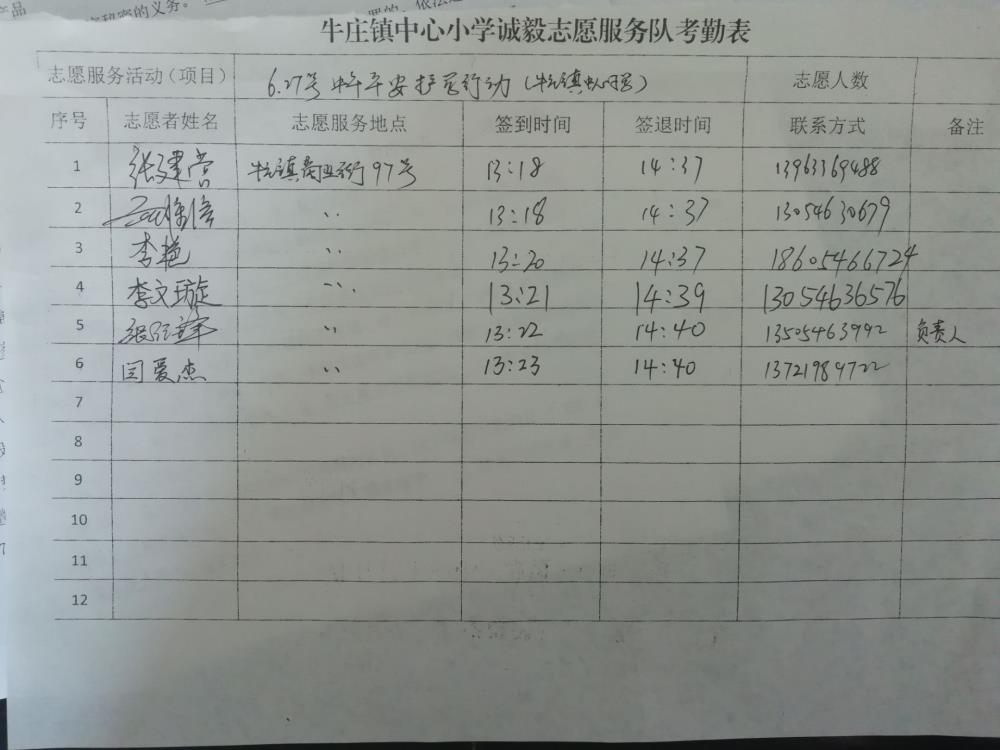 产品
的义务。
牛庄镇中心小学诚毅志愿服务队考勤表
志愿服务活动（项目） 6.27号 中午平安护苑行动 志愿人数
序号 志愿者姓名 志愿服务地点 签到时间 签退时间 联系方式 备注
1 张建营 牛庄镇商业街97号 13:18 14:37 13963369488
2 13:18 14:37 13054630679
3 李艳 13:20 14:37 18605466724
4 李文璇 13:21 14:39 13054636576
5 13:22 14:40 13505463992 负责人
6 闫爱杰 13:23 14:40 13721989722
7
8
9
10
11
12